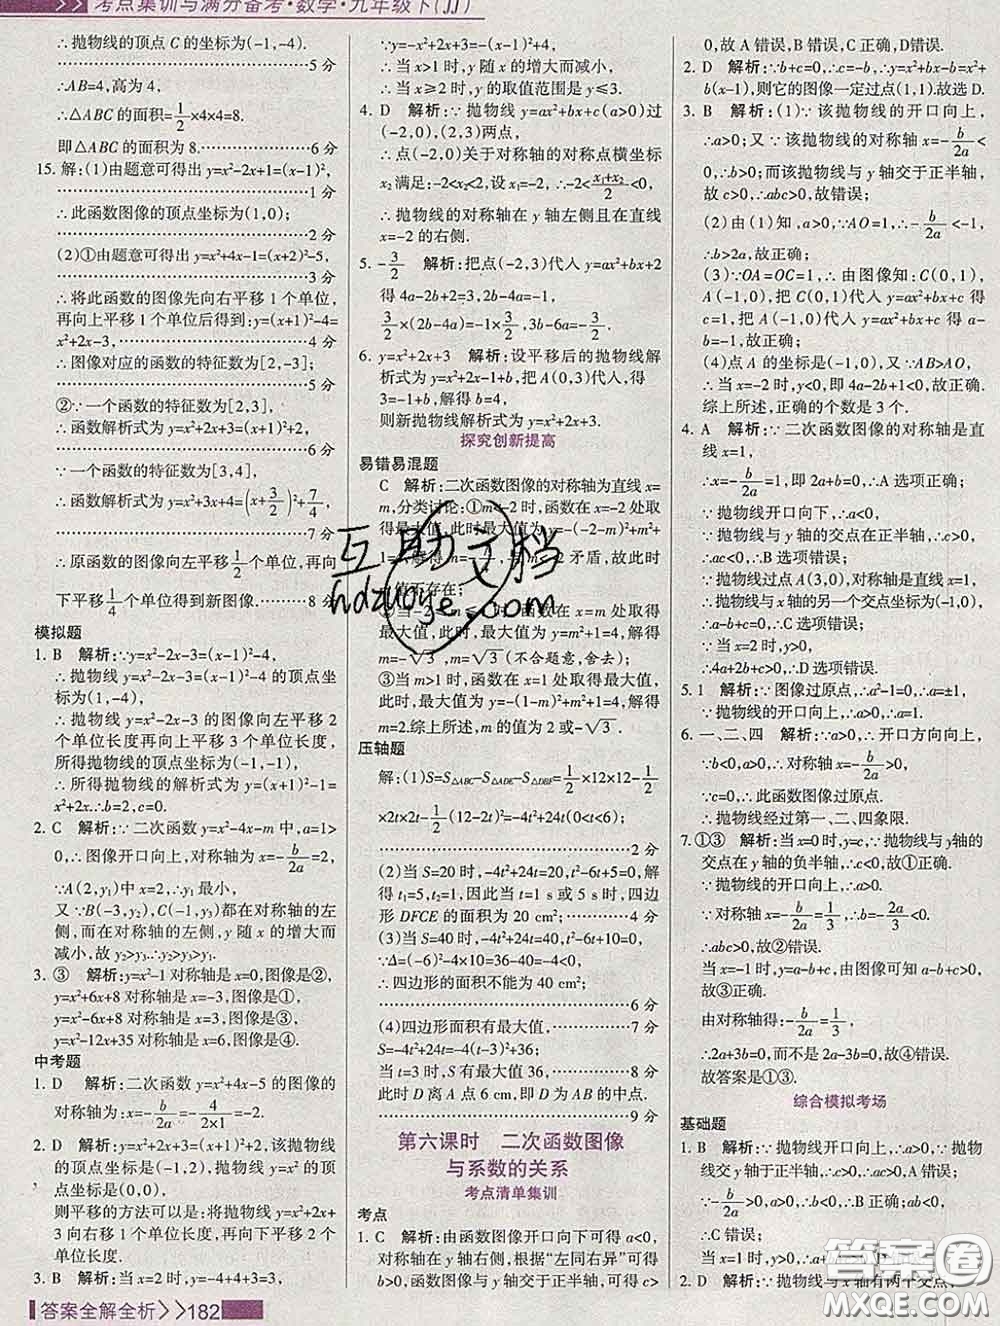 考点集训与满分备考·数学·九年级下(JJ)
∴抛物线的顶点 C 的坐标为(-1,-4).
5 分
∴AB=4,高为 4,
∴△ABC 的面积=1/2×4×4=8.
即△ABC 的面积为 8. 6 分
15. 解:(1)由题意可得出 y=x²-2x+1=(x-1)²,
1 分
∴此函数图像的顶点坐标为(1,0);
2 分
(2)①由题意可得出 y=x²+4x-1=(x+2)²-5,
3 分
∴将此函数的图像先向右平移 1 个单位,
再向上平移 1 个单位后得到:y=(x+1)²-4=
x²+2x-3, 4 分
∴图像对应的函数的特征数为[2,-3];
5 分
②∵一个函数的特征数为[2,3],
∴函数解析式为 y=x²+2x+3=(x+1)²+2,
6 分
∵一个函数的特征数为[3,4],
∴函数解析式为 y=x²+3x+4=(x+3/2)²+7/4,
7 分
∴原函数的图像向左平移1/2个单位,再向
下平移1/4个单位得到新图像. 8 分
模拟题
1. B 解析:∵y=x²-2x-3=(x-1)²-4,
∴抛物线 y=x²-2x-3 的顶点坐
标为(1,-4),
∴抛物线 y=x²-2x-3 的图像向左平移 2
个单位长度再向上平移 3 个单位长度,
所得抛物线的顶点坐标为(-1,-1),
∴所得抛物线的解析式为 y=(x+1)²-1=
x²+2x.∴b=2,c=0.
2. C 解析:∵二次函数 y=x²-4x-m 中,a=1>
0,∴图像开口向上,对称轴为 x=-b/2a=2,
∵A(2,y₁)中 x=2,∴y₁ 最小,
又∵B(-3,y₂),C(-1,y₃)都在对称轴的左
侧,而在对称轴的左侧,y 随 x 的增大而
减小,故 y₂>y₃.∴y₂>y₃>y₁.
3. ③ 解析:y=x²-1 对称轴是 x=0,图像是②,
y=x²+6x+8 对称轴是 x=-3,图像是①,
y=x²-6x+8 对称轴是 x=3,图像是③,
y=x²-12x+35 对称轴是 x=6,图像是④.
中考题
1. D 解析:二次函数 y=x²+4x-5 的图像的
对称轴为:x=-b/2a=-4/(2×1)=-2.
2. D 解析:y=x²+2x+3=(x+1)²+2,该抛物线
的顶点坐标是(-1,2),抛物线 y=x² 的顶
点坐标是(0,0),
则平移的方法可以是:将抛物线 y=x²+2x+
3 向右平移 1 个单位长度,再向下平移 2 个
单位长度.
3. B 解析:当 x=2 时,y=-4+4+3=3,
答案全解全析>>182
∵y=-x²+2x+3=-(x-1)²+4,
∴当 x>1 时,y 随 x 的增大而减小,
∴当 x≥2 时,y 的取值范围是 y≤3.
4. D 解析:∵抛物线 y=ax²+bx+c(a>0)过
(-2,0),(2,3)两点,
∴点(-2,0)关于对称轴的对称点横坐标
x₂ 满足:-2<x₂<2,画示意图,∴-2<(x₁+x₂)/2<0,
∴抛物线的对称轴在 y 轴左侧且在直线
x=-2 的右侧.
5. -3/2 解析:把点(-2,3)代入 y=ax²+bx+2
得 4a-2b+2=3,∴2b-4a=-1,
3/2×(2b-4a)=-1×3/2,3b-6a=-3/2.
6. y=x²+2x+3 解析:设平移后的抛物线解
析式为 y=x²+2x-1+b,把 A(0,3)代入,得
3=-1+b,解得 b=4,
则新抛物线解析式为 y=x²+2x+3.
探究创新提高
易错易混题
C 解析:二次函数图像的对称轴为直线 x=
m,分类讨论:①m<-2 时,函数在 x=-2 处取
得最大值,此时最大值为 y=-(-2-m)²+m²+
处取得
最大值,此时,最大值为 y=m²+1=4,解得
m=-√3,m=√3(不合题意,舍去);
③当 m>1 时,函数在 x=1 处取得最大值,
此时,最大值为 y=-(1-m)²+m²+1=4,解得
m=2.综上所述,m 的值为 2 或-√3.
压轴题
解:(1)S=S△ABC-S△ADE-S△DBF=1/2×12×12-1/2
×2t×2t-1/2(12-2t)²=-4t²+24t(0<t<6);
2 分
(2)当 S=20 时,-4t²+24t=20,t²-6t+5=0,解
得 t₁=5,t₂=1,因此当 t=1 s 或 5 s 时,四边
形 DFCE 的面积为 20 cm²; 4 分
(3)当 S=40 时,-4t²+24t=40,t²-6t+10=0,
∵Δ=(-6)²-4×10=36-40=-4<0,
∴四边形的面积不能为 40 cm²;
6 分
(4)四边形面积有最大值, 7 分
S=-4t²+24t=-4(t-3)²+36;
当 t=3 时,S 有最大值 36, 8 分
此时 D 离 A 点 6 cm,即 D 为 AB 的中点.
9 分
第六课时 二次函数图像
与系数的关系
考点清单集训
考点
1. C 解析:由函数图像开口向下可得 a<0,
对称轴在 y 轴右侧,根据“左同右异”可得
b>0,函数图像与 y 轴交于正半轴,可得 c>
0,故 A 错误,B 错误,C 正确,D 错误.
2. D 解析:∵b+c=0,∴c=-b,∴y=x²+bx-b=x²+
b(x-1),则它的图像一定过点(1,1).故选 D.
3. B 解析:(1)∵该抛物线的开口向上,
∴a>0;又∵该抛物线的对称轴 x=-b/2a
<0,∴b>0;而该抛物线与 y 轴交于正半轴,
∴c>0,∴abc>0,故错误;
(2)由(1)知,a>0,∵AO=1,∴-b/2a<-1,
∴b>2a,故正确;
(3)∵OA=OC=1,∴由图像知:C(0,1)
代入 y=ax²+bx+c 得 a-
b=-1,故正确;
(4)点 A 的坐标是(-1,0),又∵AB>AO,
∴当 x=-2 时,y<0,即 4a-2b+1<0,故正确.
综上所述,正确的个数是 3 个.
4. A 解析:∵二次函数图像的对称轴是直
线 x=1,
∴x=-b/2a=1,即 2a+b=0,A 选项正确;
∵抛物线开口向下,∴a<0,
∵抛物线与 y 轴的交点在正半轴,∴c>0,
∴ac<0,∴B 选项错误;
∵抛物线过点 A(3,0),对称轴是直线 x=1,
∴抛物线与 x 轴的另一个交点坐标为(-1,0),
∴a-b+c=0,∴C 选项错误;
∵当 x=2 时,y>0,
∴4a+2b+c>0,∴D 选项错误.
5. 1 解析:∵图像过原点,∴a²-1=0,∴a=±1,
∵抛物线的开口向上,∴a>0,∴a=1.
6. 一、二、四 解析:∵a>0,∴开口方向向上,
∵b<0,a>0,∴对称轴 x=-b/2a>0,
∵c=0,∴此函数图像过原点.
∴抛物线经过第一、二、四象限.
7. ①③ 解析:当 x=0 时,y=c,∵抛物线与 y轴的
交点在 y 轴的负半轴,∴c<0,故①正确.
∵抛物线的开口向上,∴a>0,
∵对称轴 x=-b/2a=1/3,∴b=-2a/3<0.
∴abc>0,故②错误.
故③正确.
由对称轴得:-b/2a=1/3,
∴2a+3b=0,而不是 2a-3b=0,故④错误.
故答案是①③.
综合模拟考场
基础题
1. B 解析:∵抛物线开口向上,∴a>0,∵抛物
线交 y 轴于正半轴,∴c>0,A 错误;
∵-b/2a>0,a>0,∴b<0,B 正确;ab<0,
∴C 错误;
2. D 解析:∵抛物线与 x轴有两个交点,
互助文档
hdzuoye.com
答案圈
MXQE.COM